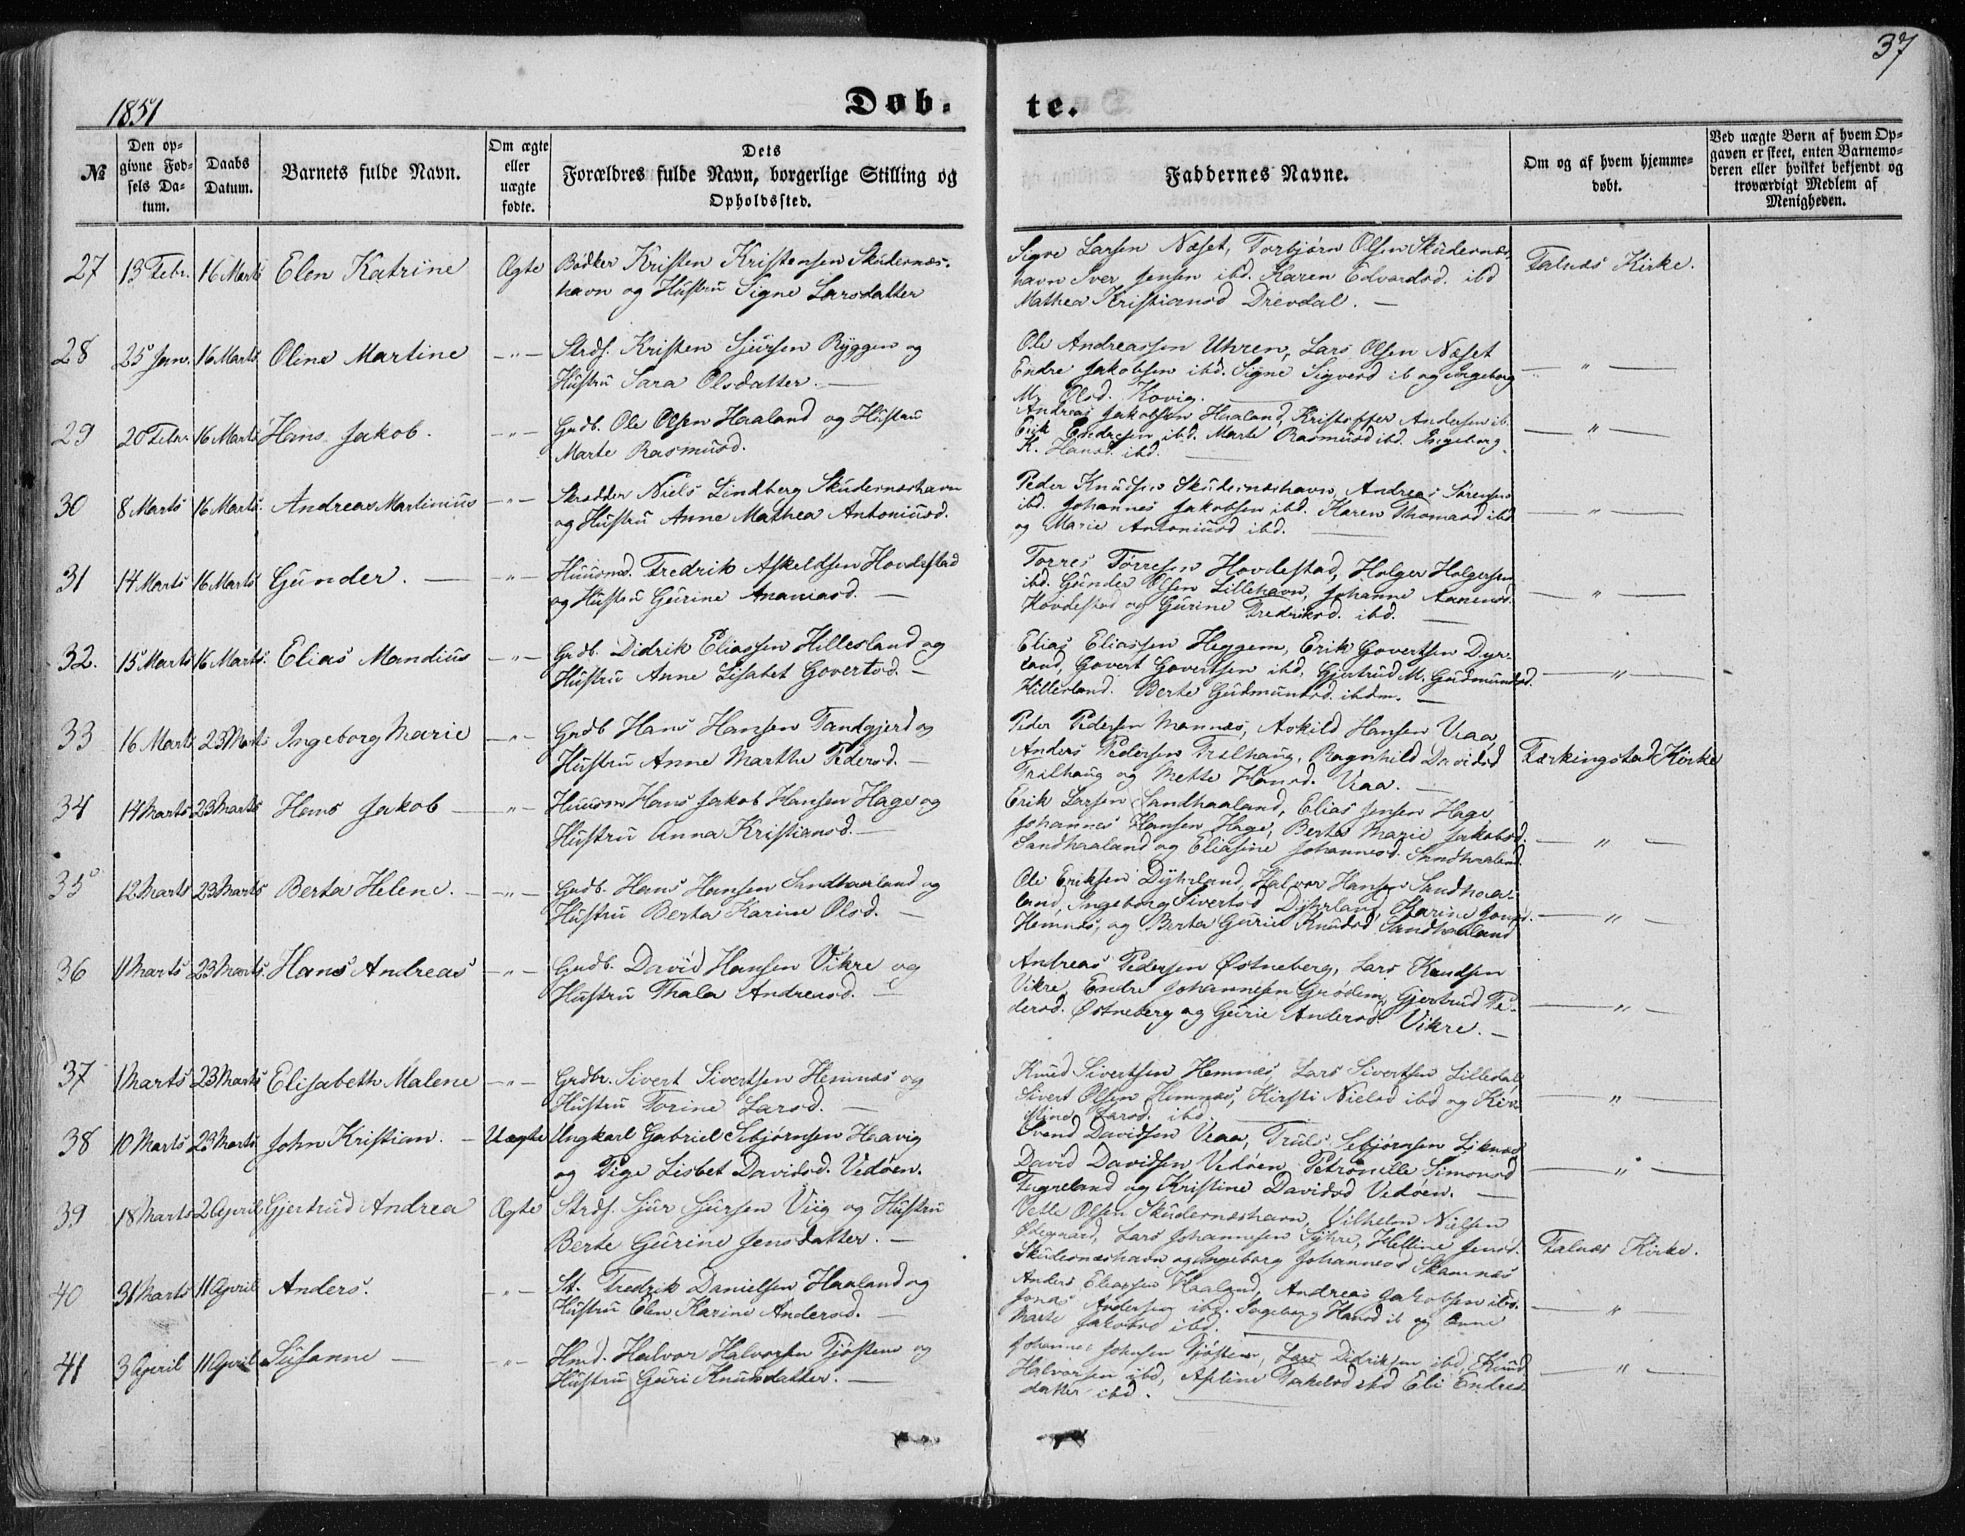 37
1851
Døb-
te.
№
Den op-
givne Fød-
sels Da-
tum.
Daabs
Datum.
Barnets fulde Navn.
Om ægte
eller
uægte
fødte.
Dets
Forældres fulde Navn, borgerlige Stilling og
Opholdssted.
Faddernes Navne.
Om og af hvem hjemme-
døbt.
Ved uægte Børn af hvem Op-
gaven er skeet, enten Barnemo-
deren eller hvilket bekjendt og
troværdigt Medlem af
Menigheden.
27 13 Febr. 16 Marts Elen Katrine Ægte Bødker Kristen Kristensen Skudernæs-
havn og Hustru Signe Larsdatter
Sigve Larsen Næset, Torbjørn Olsen Skudernæs
havn Iver Jensen ibd. Karen Edvardsd. ibd
Mathea Kristiansd Drevdal. —
Falnæs Kirke.
28 25 Jan. 16 Marts Oline Martine —"— Strdf. Kristen Sjursen Ryggen og
Hustru Sara Olsdatter. —
Ole Andreassen Uhren, Lars Olsen Næset
Endre Jakobsen ibd. Signe Sigversd ib og Ingeborg
M. Olsd. Kovig.
— " —
29 20 Febr. 16 Marts Hans Jakob. —"— Grdb. Ole Olsen Haaland og Hustru
Marte Rasmusd.
Andreas Jakobsen Haaland, Kristoffer Andersen ib.
Erik Endresen ibd. Marte Rasmusd ibd. Ingeborg
K. Hansd. ibd.
— " —
30 8 Marts 16 Marts. Andreas Martinius —"— Skrædder Niels Lindberg Skudernæshavn
og Hustru Anne Mathea Antoniusd.
Peder Knudsen Skudernæshavn, Andreas Sørensen
ibd. Johannes Jakobsen ibd. Karen Thomasd ibd
og Marie Antoniusd ibd.
— " —
31 14 Marts 16 Marts Gunder. — —"— Huusmd. Fredrik Askeldsen Hovdestad
og Hustru Gurine Ananiasd. —
Torres Tørresen Hovdestad, Holger Holgersen
ibd. Gunder Olsen Lillehavn, Johanne Aanensd.
Hovdestad og Gurine Fredriksd. ibd. —
— " —
32. 15 Marts 16 Marts. Elias Mandius —"— Grdb. Didrik Eliassen Hillesland og
Hustru Anne Lisabet Govertsd. —
Elias Eliassen Heggem, Erik Govertsen Dyr-
land, Govert Govertsen ibd, Gjertrud M. Gudmundsd.
Hillesland. Berte Gudmundsd. ibdm. —
— " —
33 16 Marts 23 Marts Ingeborg Marie —"— Grdb Hans Hansen Tandgjerd og
Hustru Anne Marthe Pedersd. —
Peder Pedersen Mannæs, Askild Hansen Veaa,
Anders Pedersen Trælhaug, Ragnhild Davidsd
Trælhaug og Mette Hansd. Veaa. —
Færkingstad Kirke
34 14 Marts 23 Marts Hans Jakob — —"— Huusm Hans Jakob Hansen Hage og
Hustru Anna Kristiansd. —
Erik Larsen Sandhaaland, Elias Jensen Hage,
Johannes Hansen Hage, Berta Marie Jakobsd.
Sandhaaland og Eliasine Johannesd. Sandhaaland
— " —
35 12 Marts 23 Marts Berta Helene. — —"— Grdb. Hans Hansen Sandhaaland og
Hustru Berta Karine Olsd. —
Ole Eriksen Dyhrland, Halvor Hansen Sandhaa-
land, Ingeborg Sivertsd Dyhrland, Karine Jonsd.
Hemnæs, og Berta Gurie Knudsd Sandhaaland
— " —
36 11 Marts 23 Marts. Hans Andreas —"— Grdb. David Hansen Vikre og
Hustru Thala Andreasd. —
Andreas Pedersen Østneberg, Lars Knudsen
Vikre, Endre Johannesen Grødem, Gjertrud Pe-
dersd. Østneberg og Gurie Andersd. Vikre. —
— " —
37 1 Marts 23 Marts Elisabeth Malene —"— Grdbr. Sivert Sivertsen Hemnæs og
Hustru Torine Larsd. —
Knud Sivertsen Hemnæs, Lars Sivertsen Lillesdal
Sivert Olsen Hemnæs, Kirsti Nielsd ibd og Kir-
stine Larsd. ibd.
— " —
38 10 Marts 23 Marts John Kristian. — Uægte Ungkarl Gabriel Sebjørnsen Haavig
og Pige Lisbet Davidsd. Vedøen.
Svend Davidsen Veaa, Truls Sebjørnsen Liknæs
David Davidsen Vedøen, Petronille Simonsd
Fugreland og Kristine Davidsd Vedøen. —
— " —
39 18 Marts 2 April Gjertrud Andrea Ægte Strdf. Sjur Sjursen Viig og Hustru
Berte Gurine Jensdatter. —
Vette Olsen Skudernæshavn, Vilhelm Nielsen
Ødegaard, Lars Johannesen Syhre, Helline Jensd.
Skudernæshavn og Ingeborg Johannesd Skamnæs
Falnæs Kirke.
40 31 Marts 11 April Anders. —"— St. Fredrik Danielsen Haaland og
Hustru Elen Karine Andersd. —
Anders Eliassen Haaland, Andreas Jakobsen ibd.
Jonas Andersen ibd. Ingeborg Hansd ib og Anne
Marte Jakobsd ibd.
— " —
41 3 April 11 April Susanne — —"— Hmd. Halvor Halvorsen Tjøstem og
Hustru Guri Knudsdatter. —
Johannes Johnsen Tjøstem, Lars Didriksen ibd, Knud
Halvorsen ibd, Asline Torkelsd ibd Eli Endres-
datter ibd.
— " —